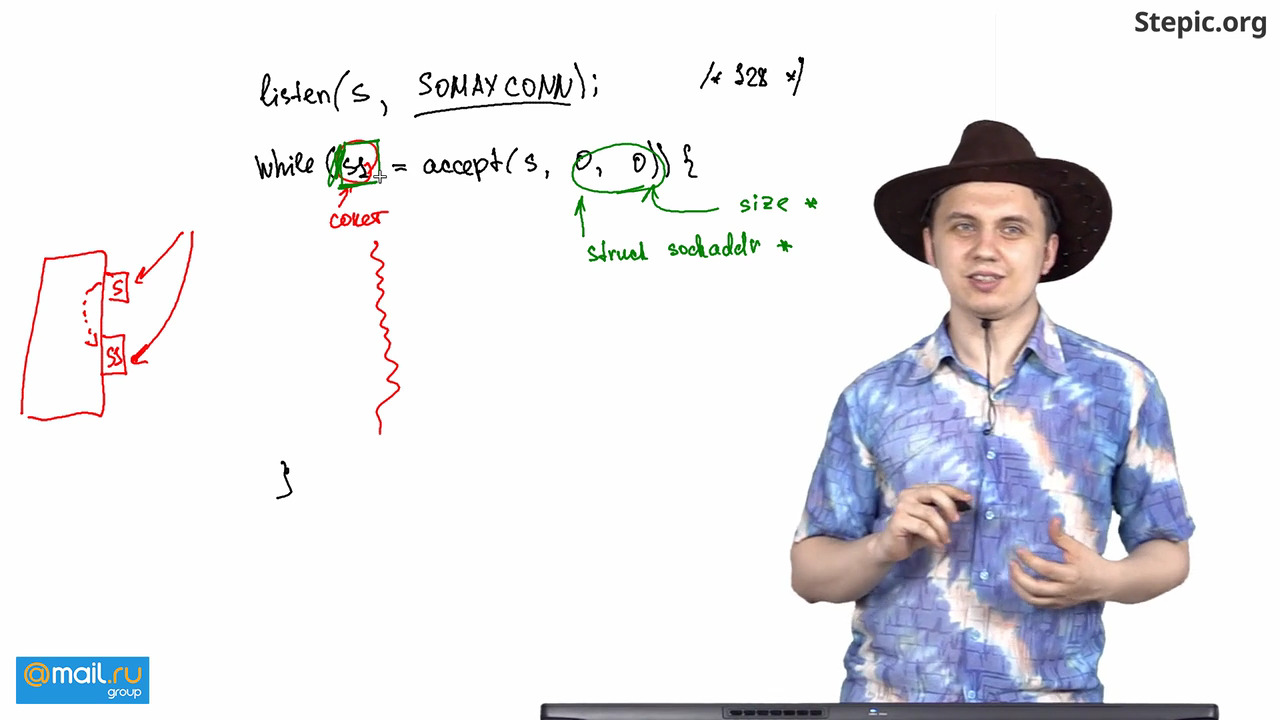 Stepic.org
listen(s, SOMAXCONN); /* 128 */
while (ss = accept(s, 0, 0)) {
сокет
size *
struct sockaddr *
s
ss
}
@mail.ru
group